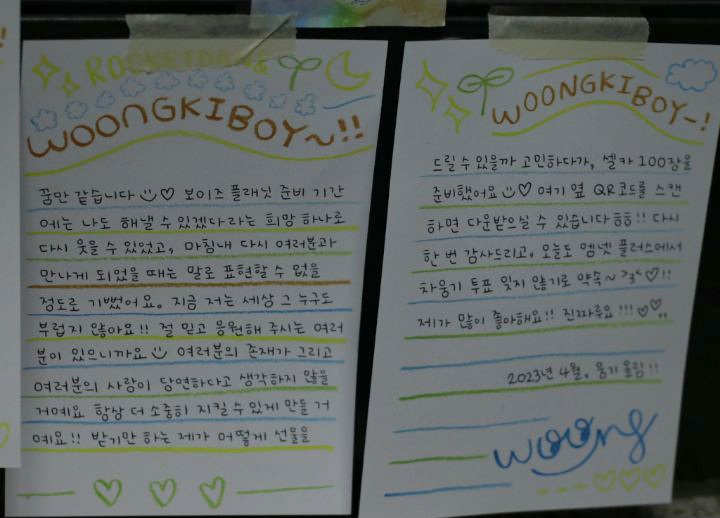 WOONGKIBOY~!!
꿈만 같습니다 ♡ 보이즈 플래닛 준비 기간
에는 나도 해낼 수 있겠다라는 희망 하나로
다시 웃을 수 있었고, 마침내 다시 여러분과
만나게 되었을 때는 말로 표현할 수 없을
정도로 기뻤어요. 지금 저는 세상 그 누구도
부럽지 않아요!! 절 믿고 응원해 주시는 여러
분이 있으니까요 여러분의 존재가 그리고
여러분의 사랑이 당연하다고 생각하지 않을
거예요 항상 더 소중히 지킬 수 있게 만들 거
예요!! 받기만 하는 제가 어떻게 선물을
WOONGKIBOY~!
드릴 수 있을까 고민하다가, 셀카 100장을
준비했어요 ♡ 여기 옆 QR코드를 스캔
하면 다운받으실 수 있습니다 흐흐!! 다시
한 번 감사드리고. 오늘도 엠넷 플러스에서
차웅기 투표 잊지 않기로 약속~ >3< ♡!!
제가 많이 좋아해요!! 진짜루요!!! ♡♡..
2023년 4월. 웅기 올림!!
woong